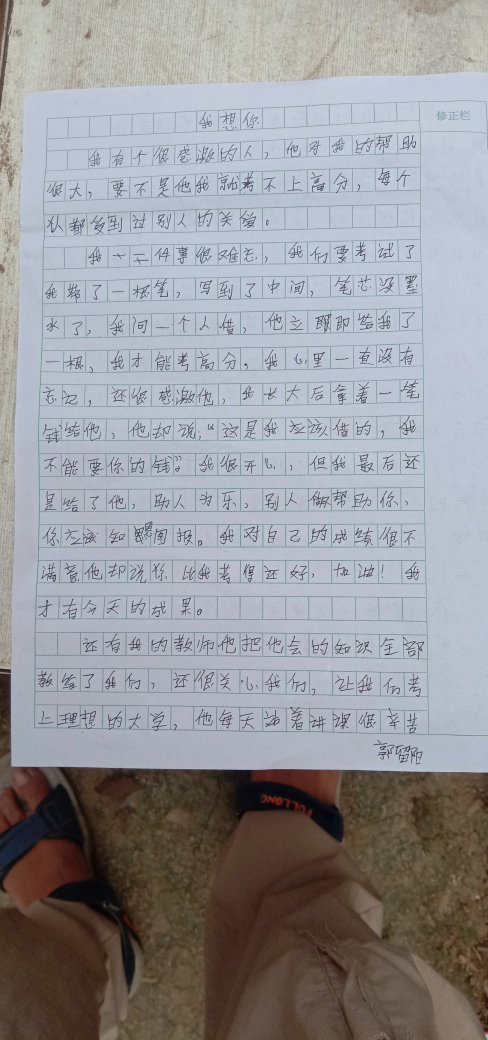 修正栏
我想你
我有个很感激的人，他对我的帮助
很大，要不是他我就考不上高分，每个
人都受到过别人的关爱。
我十二件事很难忘，我们要考试了
我带了一根笔，写到了中间，笔芯没墨
水了，我问一个人借，他立即给我了
一根，我才能考高分。我心里一直没有
忘记，还很感激他，我长大后拿着一笔
钱给他，他却说，“这是我应该借的，我
不能要你的钱”。我很开心，但我最后还
是给了他，助人为乐，别人帮助你，
你应该知恩图报。我对自己的成绩很不
满意他却说你比我考得还好，加油！我
才有今天的成果。
还有我的教师他把他会的知识全部
教给了我们，还很关心我们，让我们考
上理想的大学，他每天站着讲课很辛苦
郭留阳
FULLONG